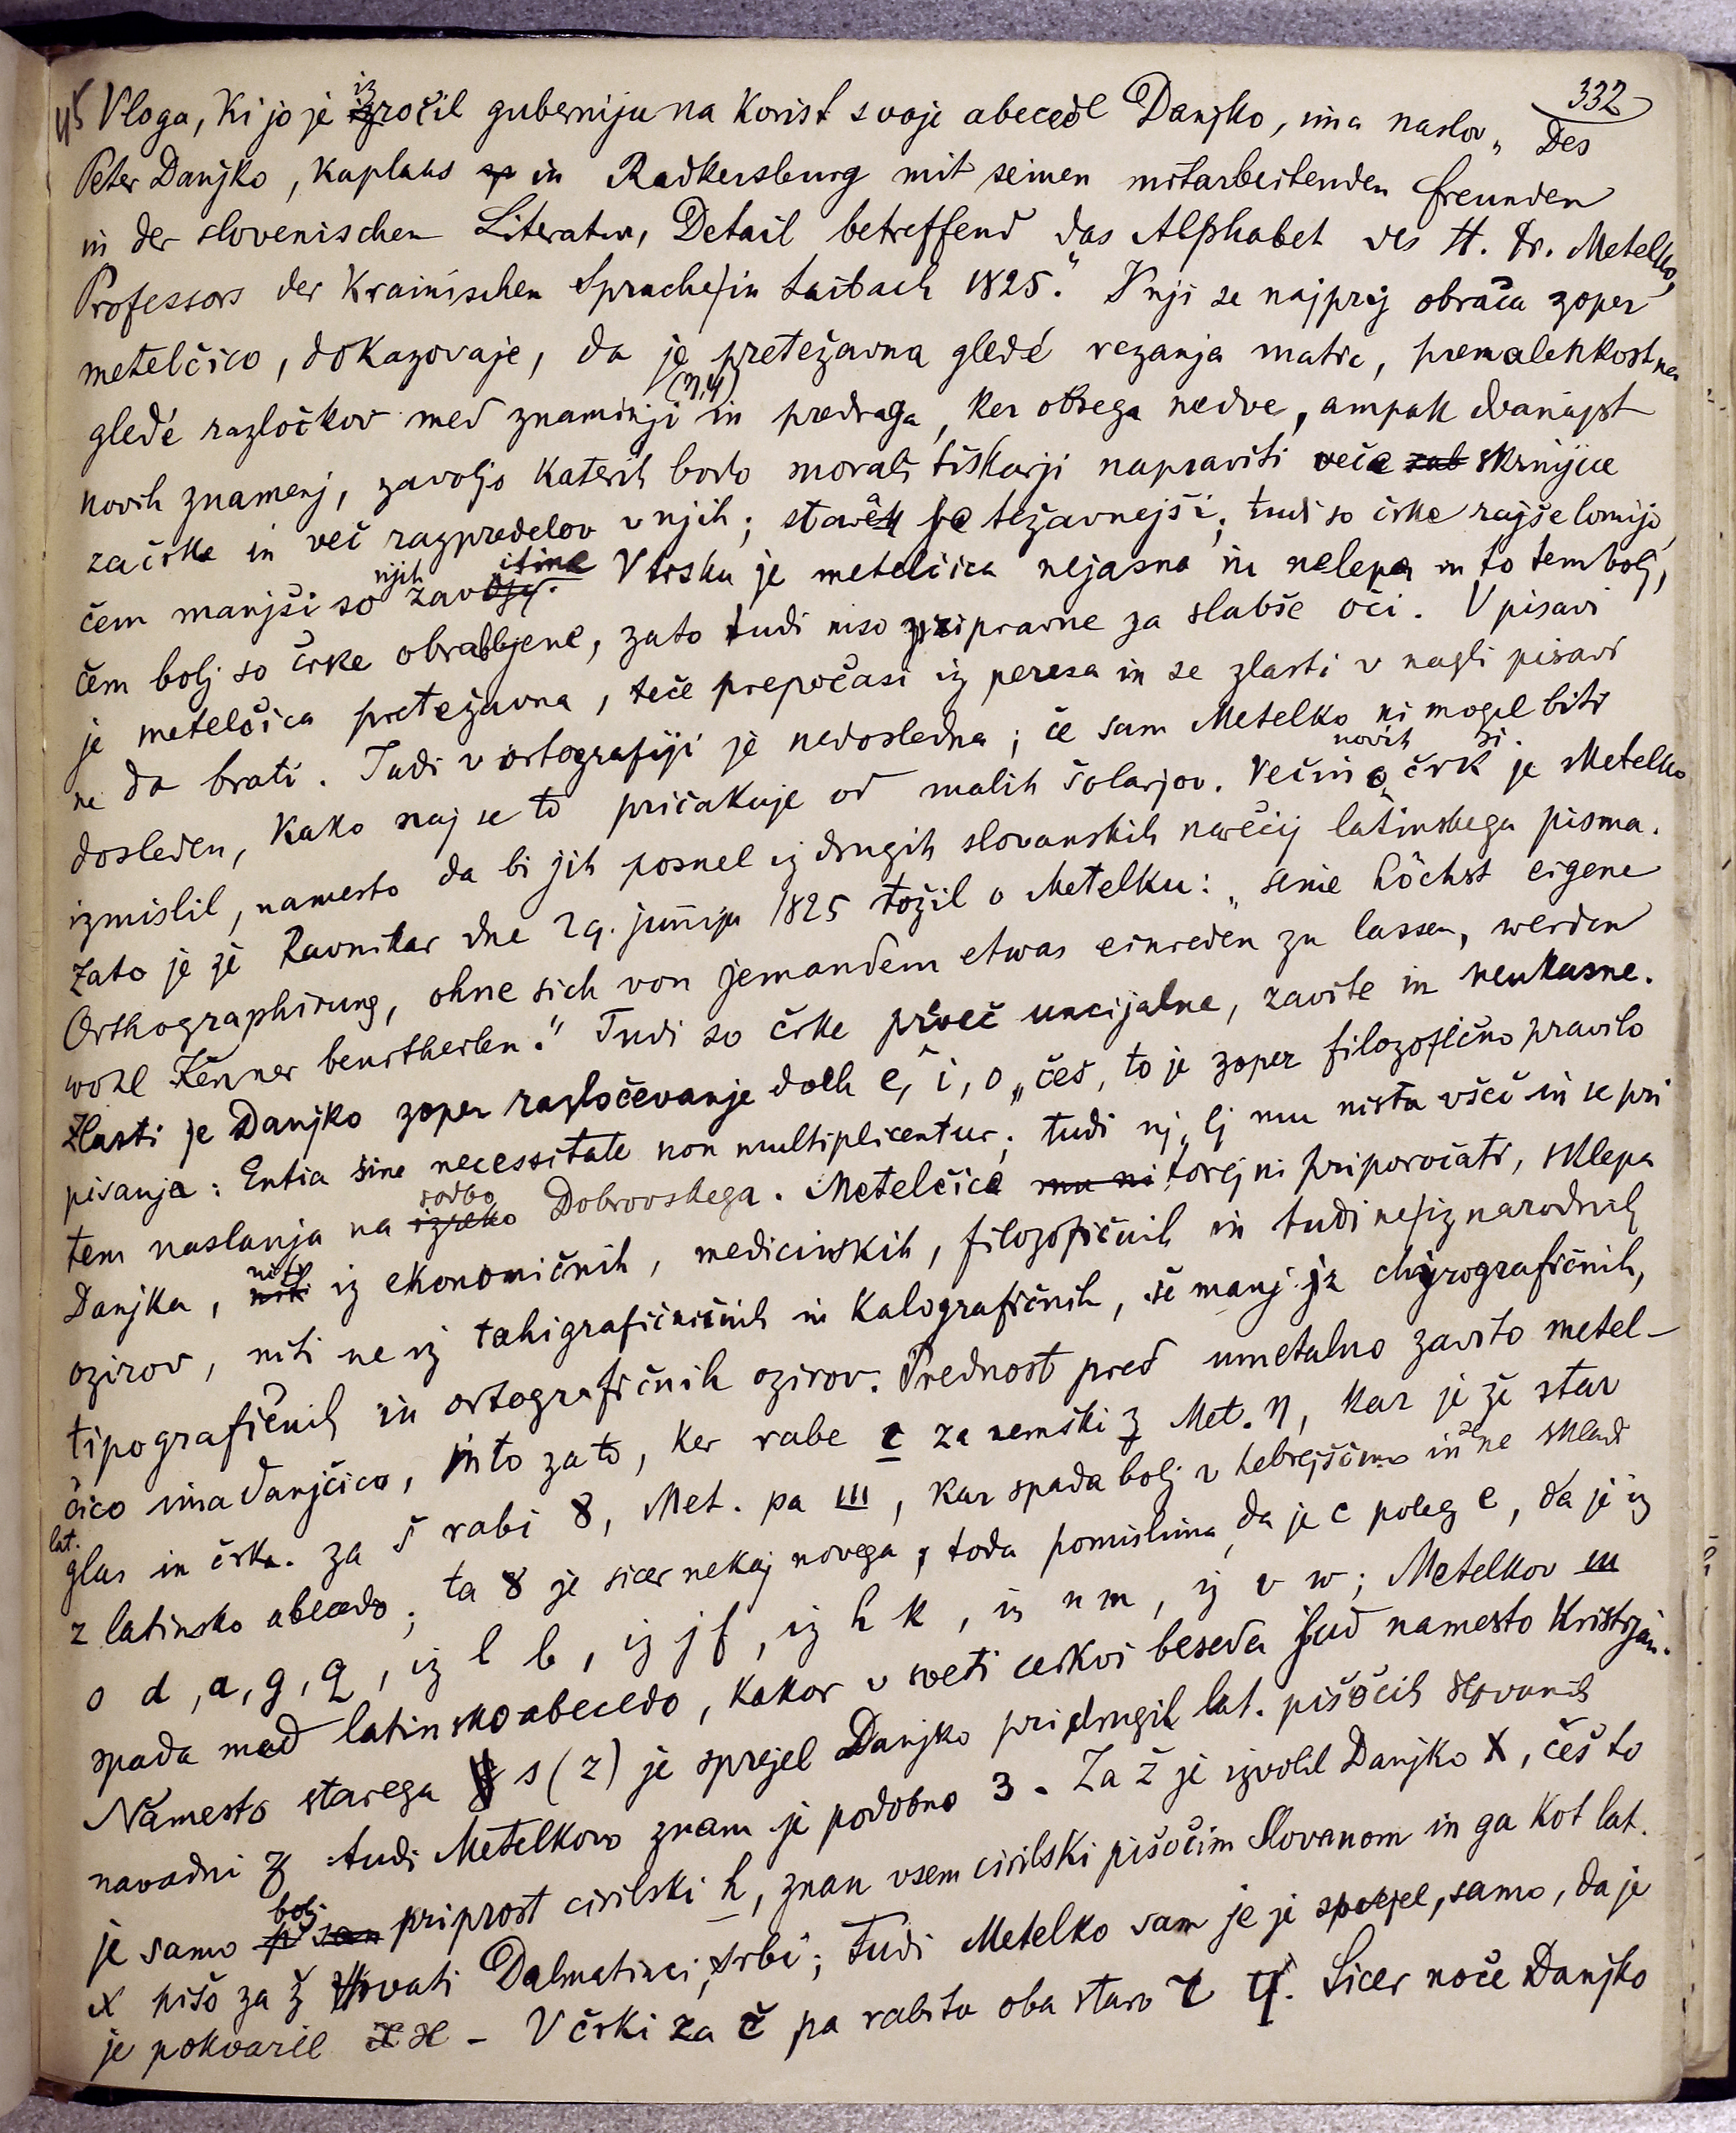 332
45 Vloga, ki jo je izročil guberniju na korist svoje abecede Danjko, ima naslov „Des
Peter Danjko, Kaplans in Radkersburg mit seinen mitarbeitenden Freunden
in der slovenischen Literatur, Detail betreffend das Alphabet des H. Fr. Metelko,
Professors der Krainischen Sprache in Laibach 1825.“ V nji se najprej obrača zoper
metelčico, dokazovaje, da je pretežavna gledé rezanja matric, premalenkostna
gledé razločkov med znaminji (n,y) in predraga, ker obsega nedve, ampak dvanajst
novih znamenj, zavoljo katerih bodo morali tiskarji napraviti veče skrinjice
za črke in več razpredelov v njih; stavek je težavnejši; tudi so črke rajše lomijo,
čem manjši so njih zavitine. V tisku je metelčica nejasna in nelepa in to tem bolj,
čem bolj so črke obrabljene, zato tudi niso pripravne za slabše oči. V pisavi
je metelčica pretežavna, teče prepočasi iz peresa in se zlasti v nagli pisavi
ne da brati. Tudi v ortografiji je nedosledna; če sam Metelko ni mogel biti
dosleden, kako naj se to pričakuje od malih šolarjov. Večino novih črk si je Metelko
izmislil, namesto da bi jih posnel iz drugih slovanskih narečij latinskega pisma.
Zato je že Ravnikar dne 29. junija 1825 tožil o Metelku: „seine höchst eigene
Orthographirung, ohne sich von jemandem etwas einreden zu lassen, werden
wohl Kenner beurtheilen.“ Tudi so črke preveč uncijalne, zavite in neukusne.
Zlasti je Danjko zoper razločevanje dveh e, i, o, češ, to je zoper filozofično pravilo
pisanja: Entia sine necessitate non multiplicentur; tudi nj, lj mu nista všeč in se pri
tem naslanja na sodbo Dobrovskega. Metelčice torej ni priporočati, sklepa
Danjka, niti iz ekonomičnih, medicinskih, filozofičnih in tudi ne iz narodnih
ozirov, niti ne iz tahigrafičničnih in kalografičnih, še manj iz chirografičnih,
tipografičnih in ortografičnih ozirov. Prednost pred umetalno zavito metel-
čico ima danjčica, in to zato, ker rabe c za nemški z Met. ꞑ, kar je že star
lat. glas in črka. Za š rabi 8, Met. pa ш, kar spada bolj v hebrejščino in se ne skladi
z latinsko abecedo; ta 8 je sicer nekaj novega, toda pomislima, da je c poleg e, da je iz
o d, a, g, q, iz l b, iz j f, iz h k, iz n m, iz v w; Metelkov ш
spada med latinsko abecedo, kakor v sveti cerkvi beseda jud namesto Kristjan.
Namesto starega s (z) je sprejel Danjko pri drugih lat. pišočih Slovanih
navadni z tudi Metelkovo znam. je podobno 3. Za ž je izvolil Danjko X, češ to
je samo bolj priprost cirilski ж, znan vsem cirilski pišočim Slovanom in ga kot lat.
x pišo za ž Hrvati Dalmatinci, Srbi; tudi Metelko sam je je sprejel, samo, da je
je pokvaril ж – V črki za č pa rabita oba staro ч. Sicer noče Danjko